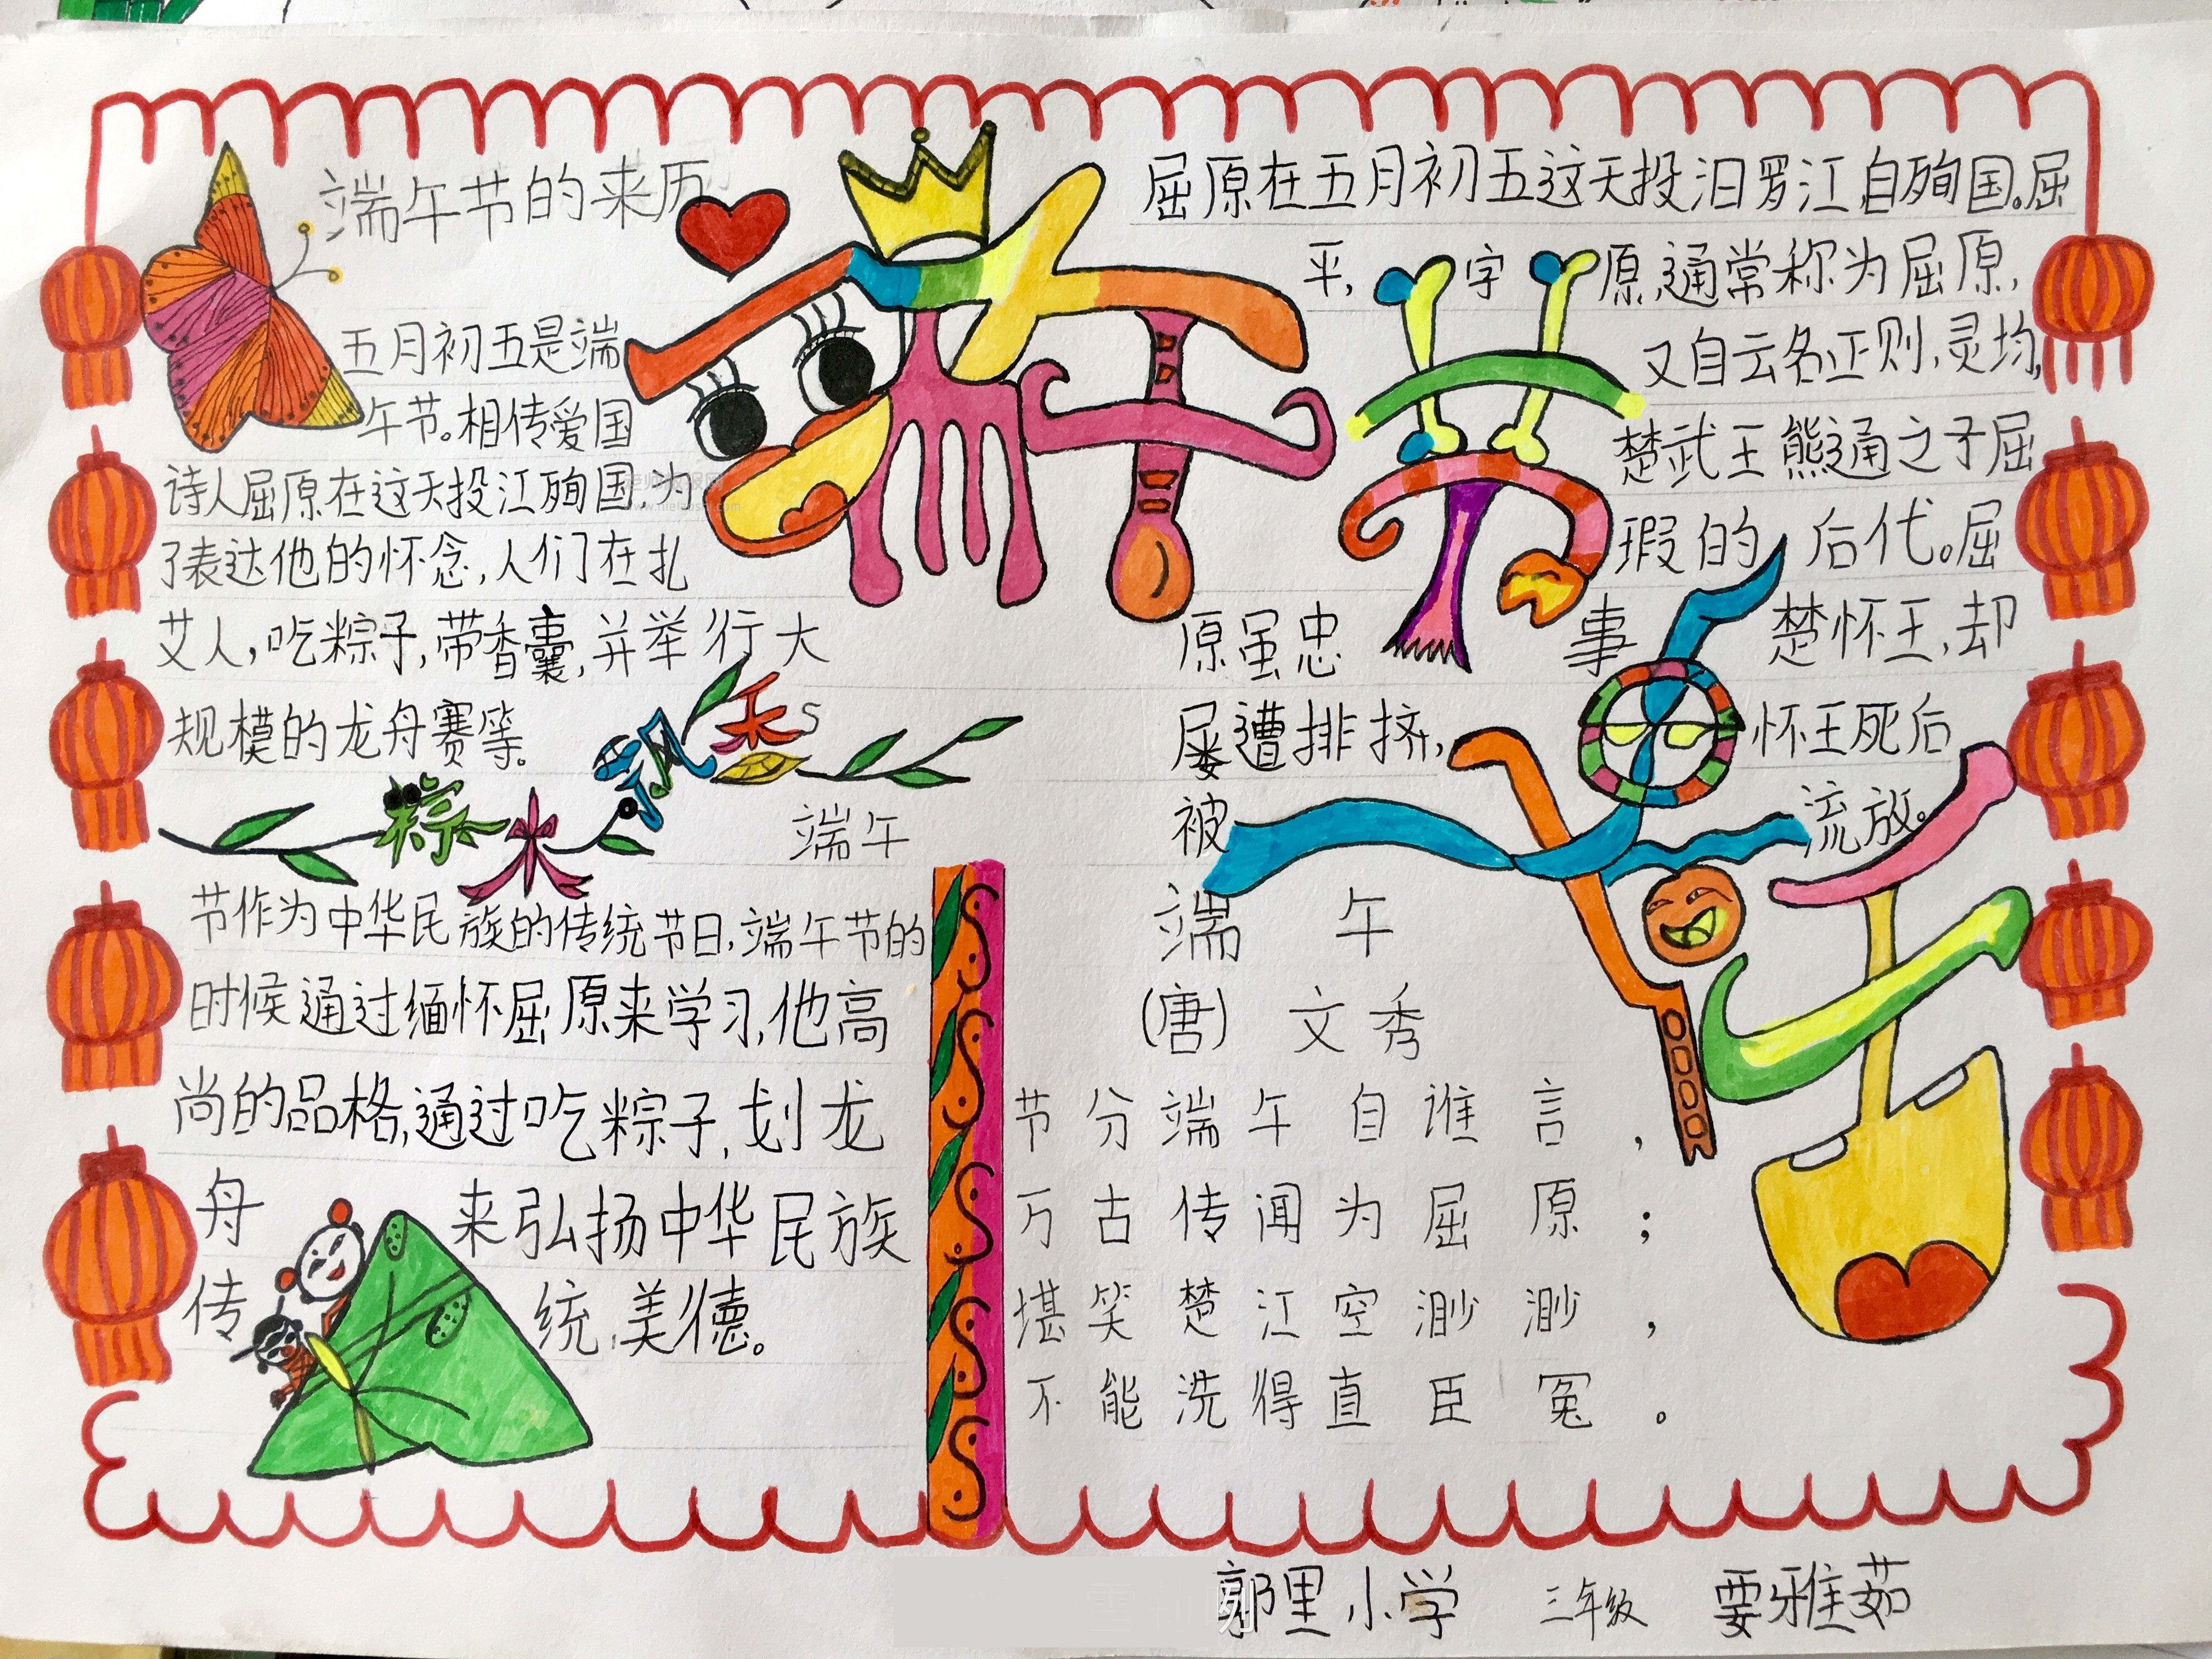 端午节的来历
五月初五是端
午节。相传爱国
诗人屈原在这天投江殉国,为
了表达他的怀念,人们在扎
艾人,吃粽子,带香囊,并举行大
规模的龙舟赛等。
粽水飘香
端午
节作为中华民族的传统节日,端午节的
时候通过缅怀屈原来学习,他高
尚的品格,通过吃粽子,划龙
舟 来弘扬中华民族
传 统,美德。
端午节
快乐
屈原在五月初五这天投汨罗江,自殉国。屈
平, 字 原,通常称为屈原,
又自云名正则,灵均,
楚武王熊通之子屈
瑕的 后代。屈
原虽忠 事 楚怀王,却
屡遭排挤, 怀王死后
被 流放。
端 午
(唐) 文秀
节分端午自谁言,
万古传闻为屈原;
堪笑楚江空渺渺,
不能洗得直臣冤。
郭里小学 三年级 要雅茹